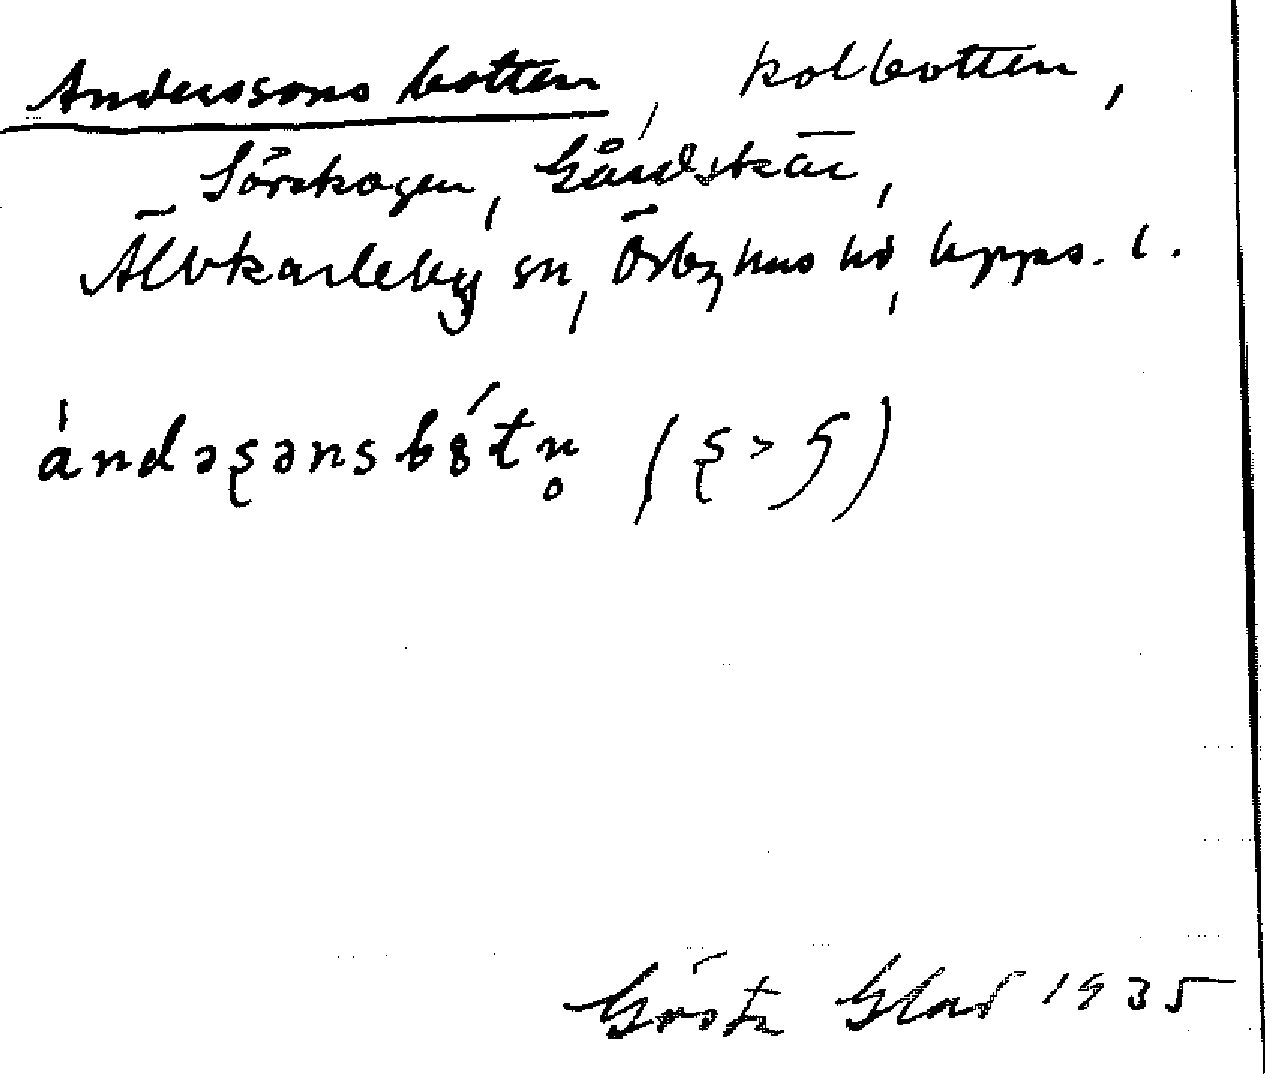 Anderssons botten, kolbotten,
Sörskogen, Gårdskär,
Älvkarleby sn, Örbyhus hd, Upps. l.
ándəʂənsbȣ́tn̥ (ʂ > ʃ)
Gösta Glad 1935